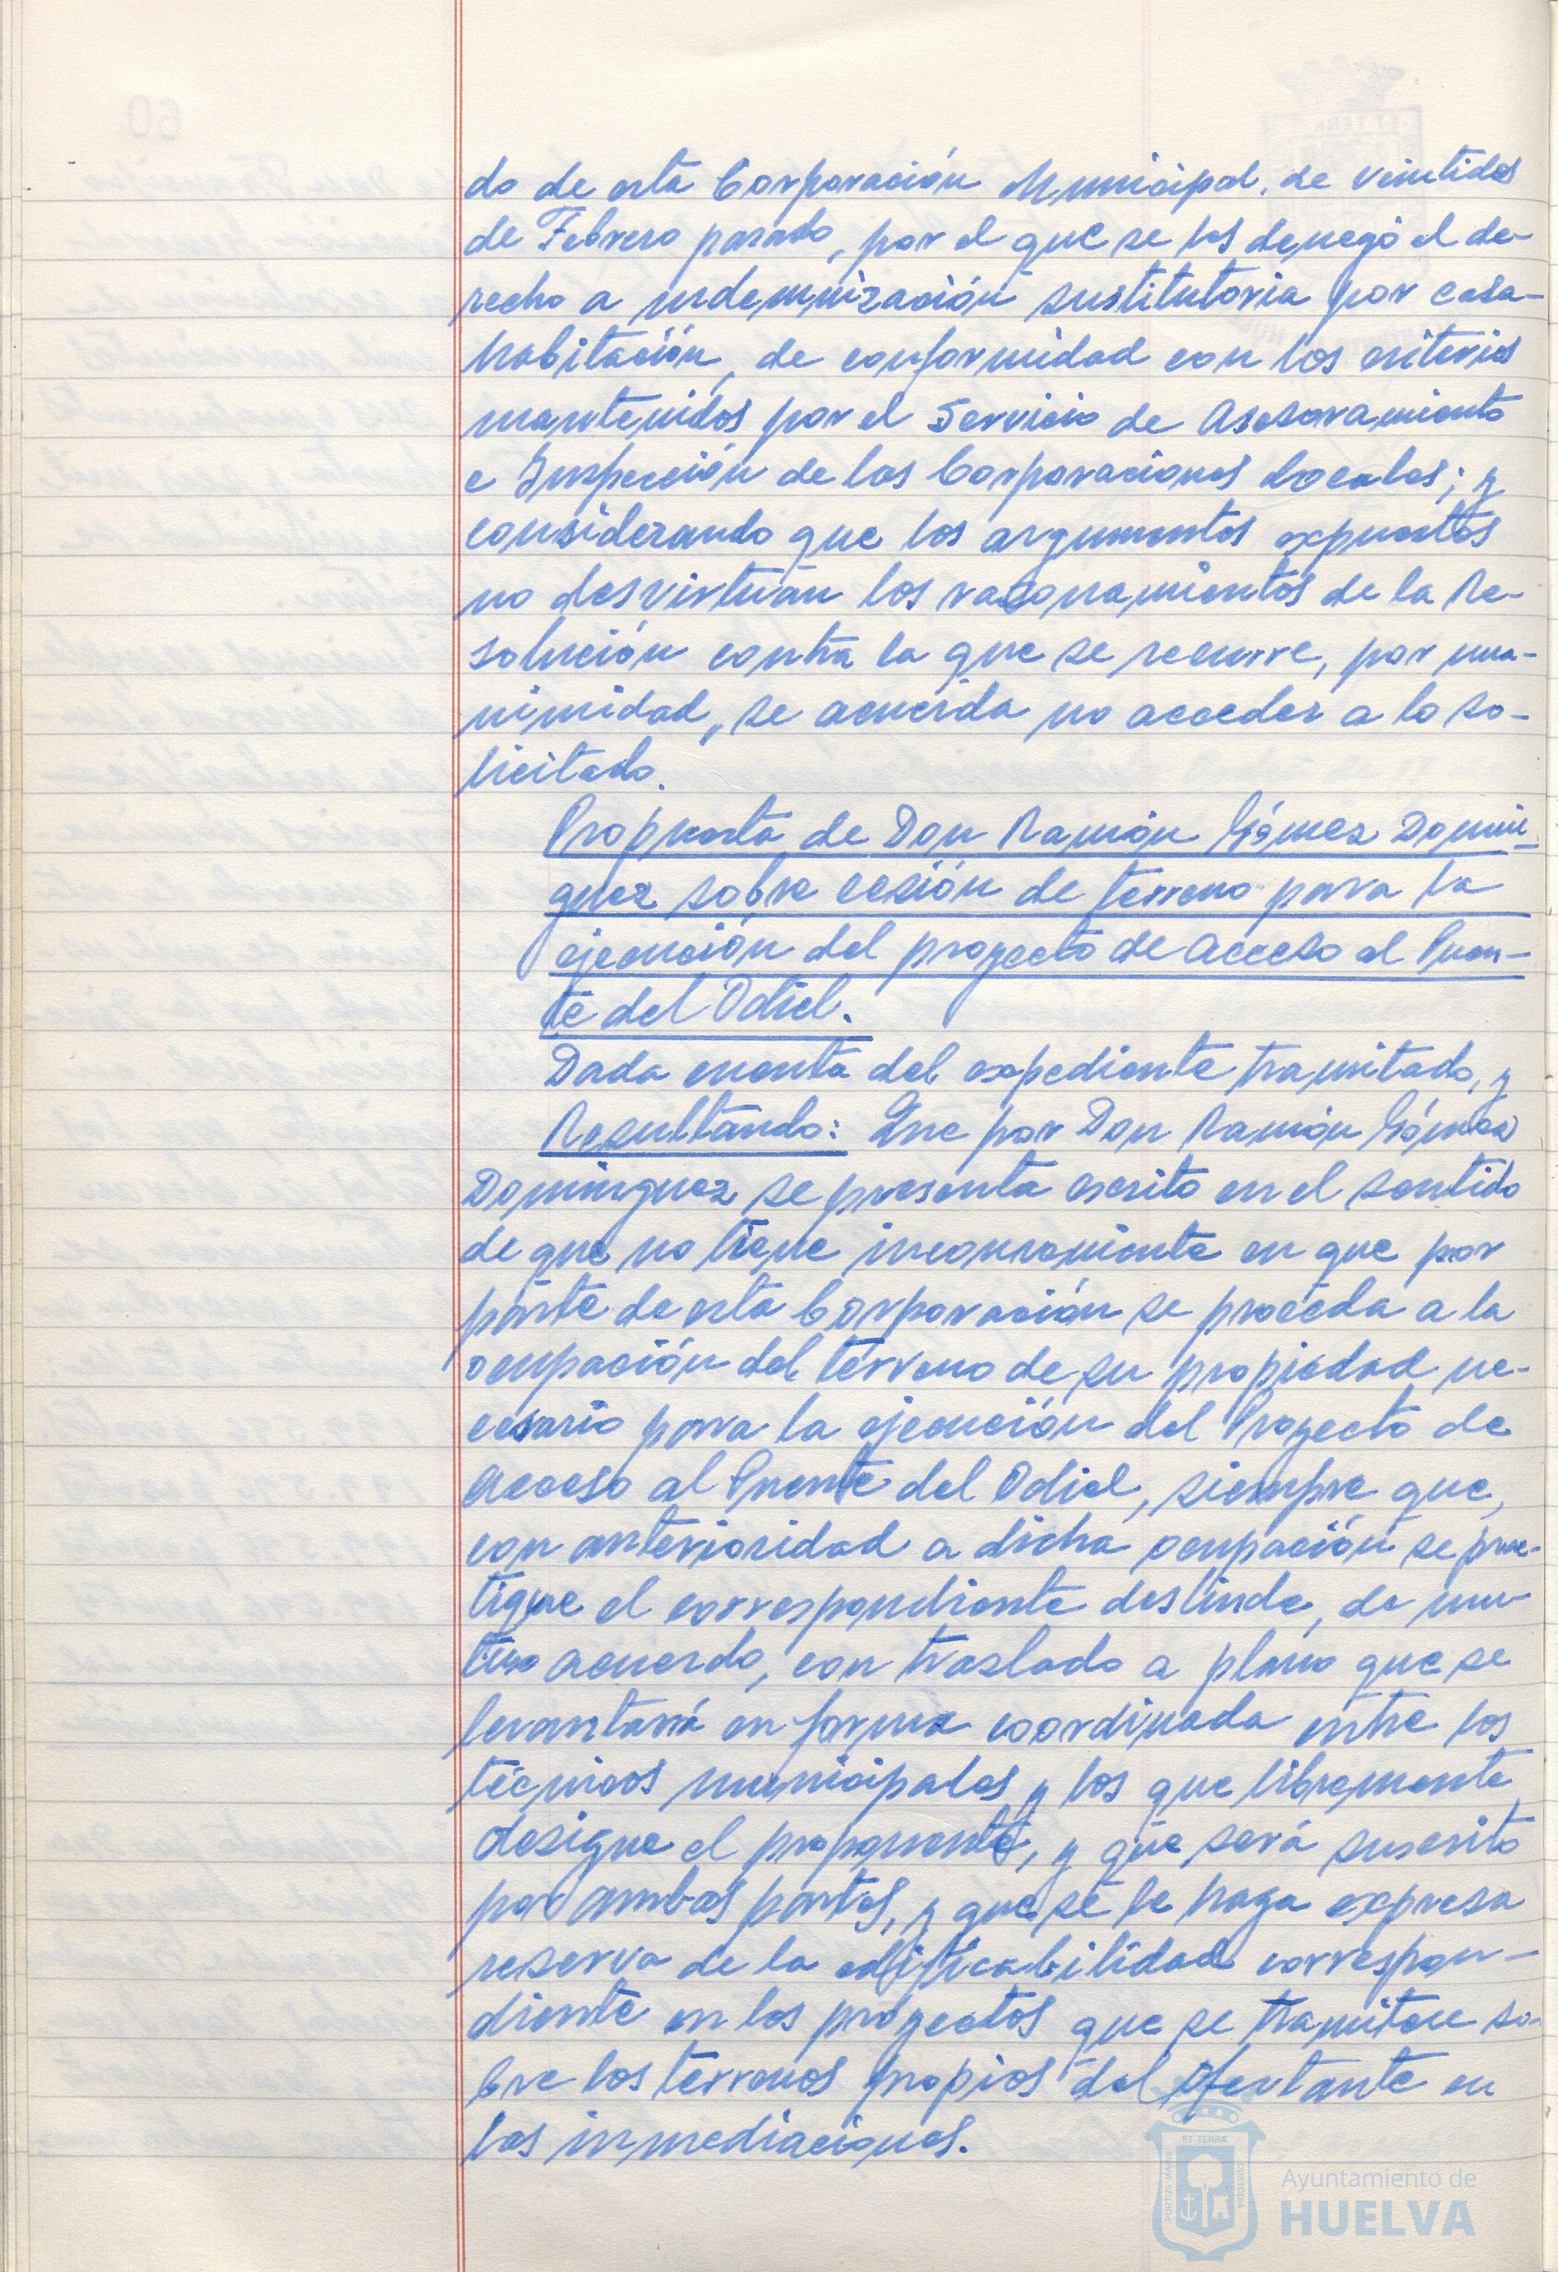 do de esta Corporación Municipal, de veintidos
de Febrero pasado, por el que se les denegó el de-
recho a indemnización sustitutoria por casa-
habitación, de conformidad con los criterios
mantenidos por el Servicio de Asesoramiento
e Inspección de las Corporaciones Locales; y
considerando que los argumentos expuestos
no desvirtúan los razonamientos de la Re-
solución contra la que se recurre, por una-
nimidad, se acuerda no acceder a lo so-
licitado.
Propuesta de Don Ramón Gómez Domín-
guez sobre cesión de terreno para la
ejecución del proyecto de acceso al Puen-
te del Odiel.
Dada cuenta del expediente tramitado, y
Resultando: Que por Don Ramón Gómez
Domínguez se presenta escrito en el sentido
de que no tiene inconveniente en que por
parte de esta Corporación se proceda a la
ocupación del terreno de su propiedad ne-
cesario para la ejecución del Proyecto de
acceso al Puente del Odiel, siempre que,
con anterioridad a dicha ocupación se prac-
tique el correspondiente deslinde, de mu-
tuo acuerdo, con traslado a plano que se
levantará en forma coordinada entre los
técnicos municipales y los que libremente
designe el proponente, y que será suscrito
por ambas partes, y que se le haga expresa
reserva de la edificabilidad correspon-
diente en los proyectos que se tramiten so-
bre los terrenos propios del ofertante en
las inmediaciones.
ET TERRA
PORTUS MARIS
CUSTODIA
Ayuntamiento de
HUELVA